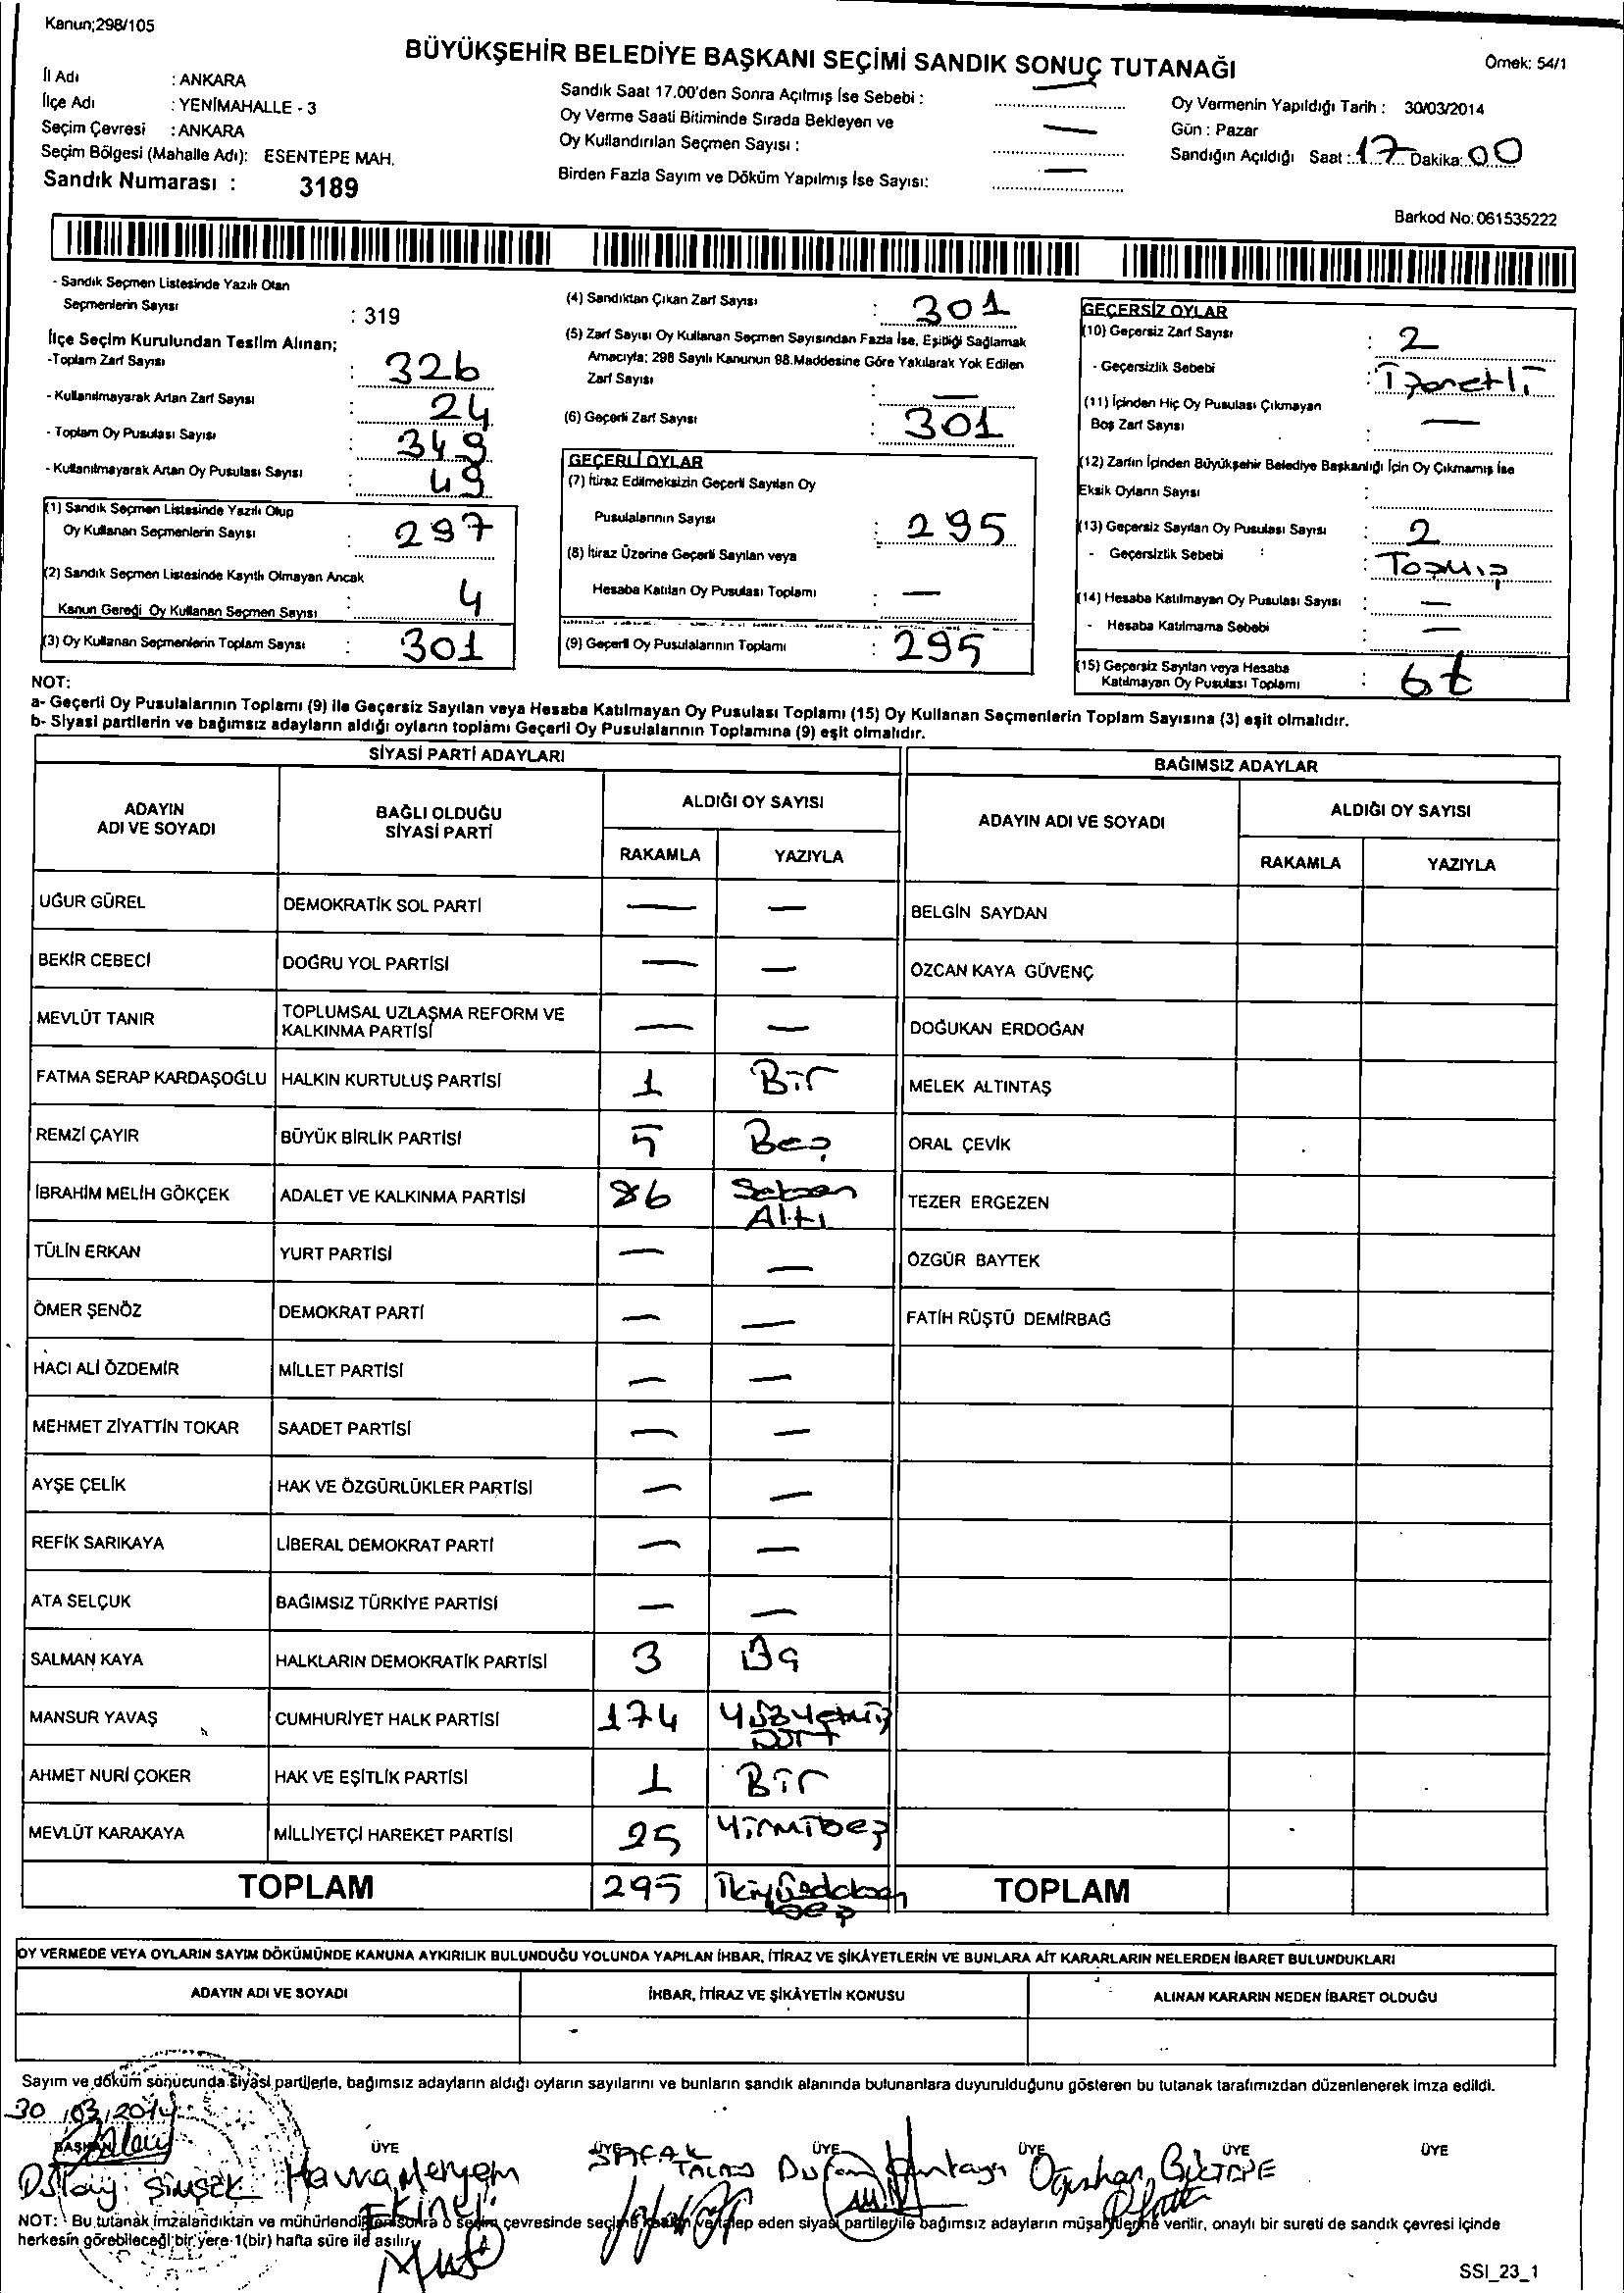 Kanun;298/105
BÜYÜKŞEHİR BELEDİYE BAŞKANI SEÇİMİ SANDIK SONUÇ TUTANAĞI
Örnek: 54/1
İl Adı : ANKARA
İlçe Adı : YENİMAHALLE - 3
Seçim Çevresi : ANKARA
Seçim Bölgesi (Mahalle Adı): ESENTEPE MAH.
Sandık Numarası : 3189
Sandık Saat 17.00'den Sonra Açılmış İse Sebebi : —
Oy Verme Saati Bitiminde Sırada Bekleyen ve
Oy Kullandırılan Seçmen Sayısı : —
Birden Fazla Sayım ve Döküm Yapılmış İse Sayısı: —
Oy Vermenin Yapıldığı Tarih : 30/03/2014
Gün : Pazar
Sandığın Açıldığı Saat : 17 Dakika: 00
Barkod No: 061535222
- Sandık Seçmen Listesinde Yazılı Olan
Seçmenlerin Sayısı : 319
İlçe Seçim Kurulundan Teslim Alınan;
-Toplam Zarf Sayısı : 326
- Kullanılmayarak Artan Zarf Sayısı : 24
- Toplam Oy Pusulası Sayısı : 349
- Kullanılmayarak Artan Oy Pusulası Sayısı : 49
(1) Sandık Seçmen Listesinde Yazılı Olup
Oy Kullanan Seçmenlerin Sayısı : 297
(2) Sandık Seçmen Listesinde Kayıtlı Olmayan Ancak
Kanun Gereği Oy Kullanan Seçmen Sayısı : 4
(3) Oy Kullanan Seçmenlerin Toplam Sayısı : 301
(4) Sandıktan Çıkan Zarf Sayısı : 301
(5) Zarf Sayısı Oy Kullanan Seçmen Sayısından Fazla İse, Eşitliği Sağlamak
Amacıyla; 298 Sayılı Kanunun 98.Maddesine Göre Yakılarak Yok Edilen
Zarf Sayısı : —
(6) Geçerli Zarf Sayısı : 301
GEÇERLİ OYLAR
(7) İtiraz Edilmeksizin Geçerli Sayılan Oy
Pusulalarının Sayısı : 295
(8) İtiraz Üzerine Geçerli Sayılan veya
Hesaba Katılan Oy Pusulası Toplamı : —
(9) Geçerli Oy Pusulalarının Toplamı : 295
GEÇERSİZ OYLAR
(10) Geçersiz Zarf Sayısı : 2
- Geçersizlik Sebebi : İşaretli
(11) İçinden Hiç Oy Pusulası Çıkmayan
Boş Zarf Sayısı : —
(12) Zarfın İçinden Büyükşehir Belediye Başkanlığı İçin Oy Çıkmamış İse
Eksik Oyların Sayısı :
(13) Geçersiz Sayılan Oy Pusulası Sayısı : 2
- Geçersizlik Sebebi : Taşmış
(14) Hesaba Katılmayan Oy Pusulası Sayısı : —
- Hesaba Katılmama Sebebi : —
(15) Geçersiz Sayılan veya Hesaba
Katılmayan Oy Pusulası Toplamı : 6
NOT:
a- Geçerli Oy Pusulalarının Toplamı (9) ile Geçersiz Sayılan veya Hesaba Katılmayan Oy Pusulası Toplamı (15) Oy Kullanan Seçmenlerin Toplam Sayısına (3) eşit olmalıdır.
b- Siyasi partilerin ve bağımsız adayların aldığı oyların toplamı Geçerli Oy Pusulalarının Toplamına (9) eşit olmalıdır.
SİYASİ PARTİ ADAYLARI
ADAYIN ADI VE SOYADI BAĞLI OLDUĞU SİYASİ PARTİ ALDIĞI OY SAYISI
RAKAMLA YAZIYLA
UĞUR GÜREL DEMOKRATİK SOL PARTİ — —
BEKİR CEBECİ DOĞRU YOL PARTİSİ — —
MEVLÜT TANIR TOPLUMSAL UZLAŞMA REFORM VE KALKINMA PARTİSİ — —
FATMA SERAP KARDAŞOĞLU HALKIN KURTULUŞ PARTİSİ 1 Bir
REMZİ ÇAYIR BÜYÜK BİRLİK PARTİSİ 5 Beş
İBRAHİM MELİH GÖKÇEK ADALET VE KALKINMA PARTİSİ 86 Seksen Altı
TÜLİN ERKAN YURT PARTİSİ — —
ÖMER ŞENÖZ DEMOKRAT PARTİ — —
HACI ALİ ÖZDEMİR MİLLET PARTİSİ — —
MEHMET ZİYATTİN TOKAR SAADET PARTİSİ — —
AYŞE ÇELİK HAK VE ÖZGÜRLÜKLER PARTİSİ — —
REFİK SARIKAYA LİBERAL DEMOKRAT PARTİ — —
ATA SELÇUK BAĞIMSIZ TÜRKİYE PARTİSİ — —
SALMAN KAYA HALKLARIN DEMOKRATİK PARTİSİ 3 Üç
MANSUR YAVAŞ CUMHURİYET HALK PARTİSİ 174 Yüzyetmiş Dört
AHMET NURİ ÇOKER HAK VE EŞİTLİK PARTİSİ 1 Bir
MEVLÜT KARAKAYA MİLLİYETÇİ HAREKET PARTİSİ 25 Yirmibeş
TOPLAM 295
BAĞIMSIZ ADAYLAR
ADAYIN ADI VE SOYADI ALDIĞI OY SAYISI
RAKAMLA YAZIYLA
BELGİN SAYDAN
ÖZCAN KAYA GÜVENÇ
DOĞUKAN ERDOĞAN
MELEK ALTINTAŞ
ORAL ÇEVİK
TEZER ERGEZEN
ÖZGÜR BAYTEK
FATİH RÜŞTÜ DEMİRBAĞ
TOPLAM
OY VERMEDE VEYA OYLARIN SAYIM DÖKÜMÜNDE KANUNA AYKIRILIK BULUNDUĞU YOLUNDA YAPILAN İHBAR, İTİRAZ VE ŞİKÂYETLERİN VE BUNLARA AİT KARARLARIN NELERDEN İBARET BULUNDUKLARI
ADAYIN ADI VE SOYADI İHBAR, İTİRAZ VE ŞİKÂYETİN KONUSU ALINAN KARARIN NEDEN İBARET OLDUĞU
Sayım ve döküm sonucunda siyasi partilerle, bağımsız adayların aldığı oyların sayılarını ve bunların sandık alanında bulunanlara duyurulduğunu gösteren bu tutanak tarafımızdan düzenlenerek imza edildi.
30/03/2014
BAŞKAN ÜYE ÜYE ÜYE ÜYE ÜYE ÜYE
ŞİMŞEK Havva Meryem EKİNCİ ŞAFAK Oğushan GÜLTEPE
NOT: Bu tutanak imzalandıktan ve mühürlendikten sonra o seçim çevresinde seçime katılan ve talep eden siyasi partiler ile bağımsız adayların müşahitlerine verilir, onaylı bir sureti de sandık çevresi içinde
herkesin görebileceği bir yere 1(bir) hafta süre ile asılır.
SSI_23_1